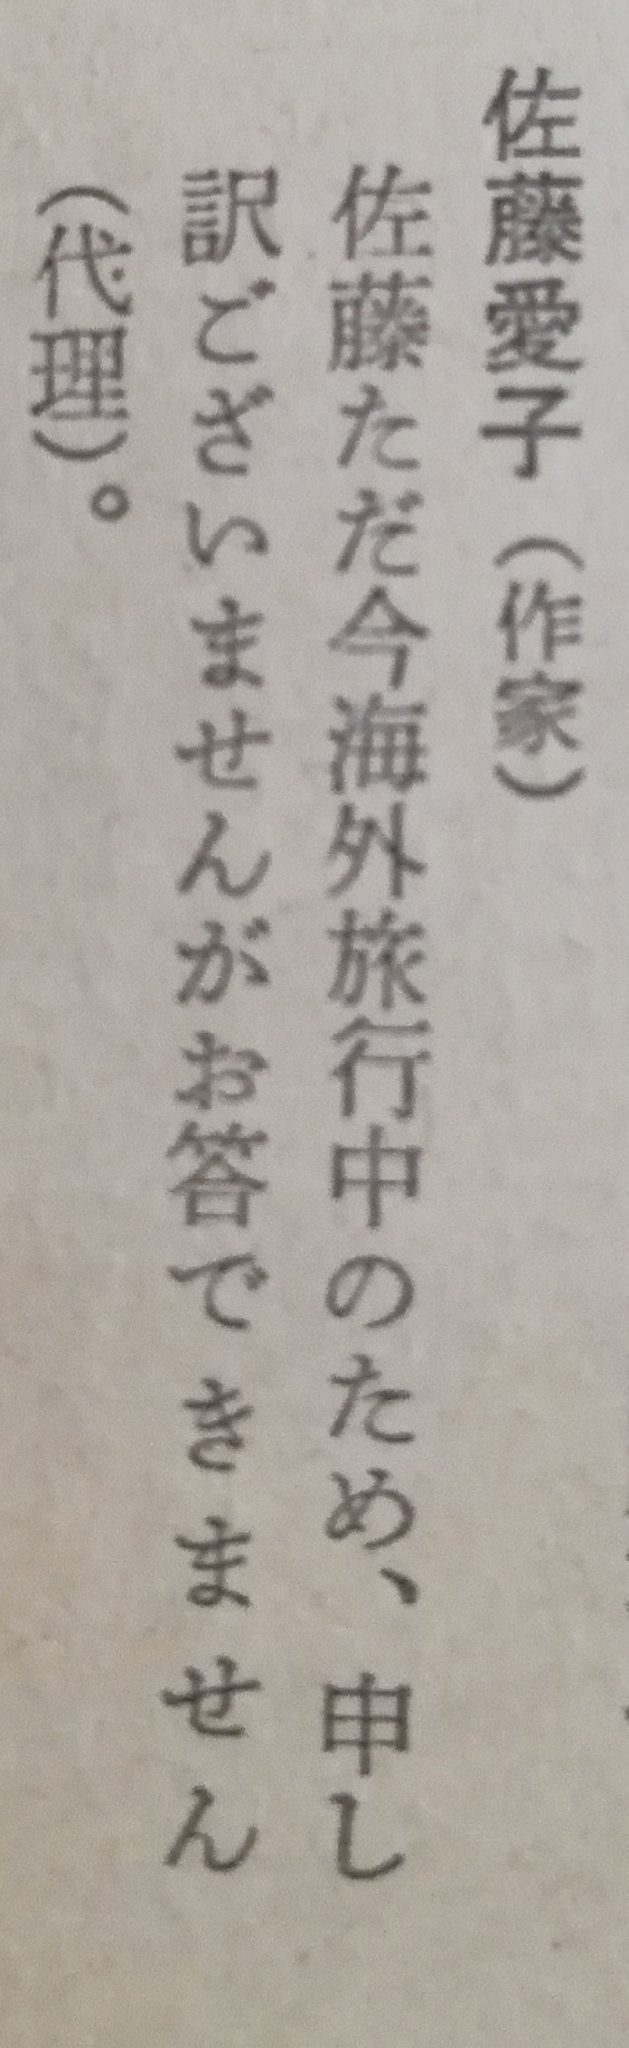 佐藤愛子（作家）
佐藤ただ今海外旅行中のため、申し
訳ございませんがお答できません
（代理）。